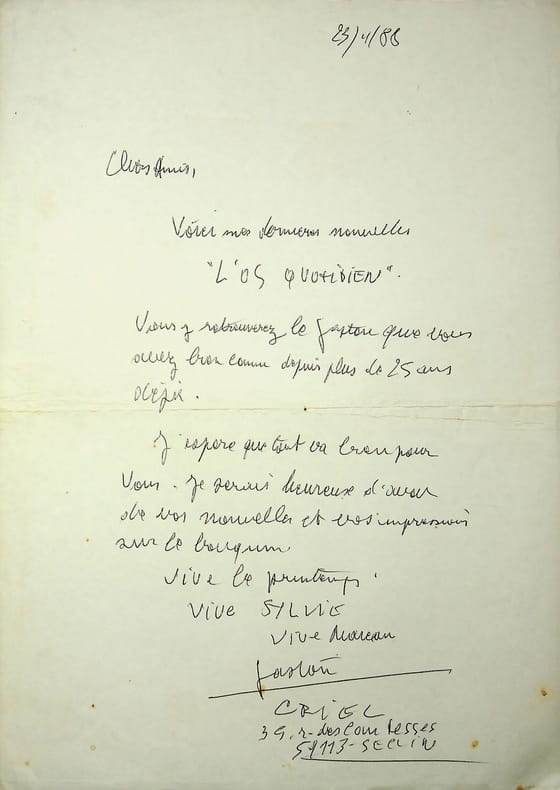 23/4/88
Chers Amis,
Voici mes dernieres nouvelles
"L'OS QUOTIDIEN".
Vous y retrouverez le Gaston que vous
avez bien connu depuis plus de 25 ans
déjà.
J'espère que tout va bien pour
Vous. Je serais heureux d'avoir
de vos nouvelles et vos impressions
sur le bouquin.
Vive le printemps!
Vive SYLVIE
Vive
Gaston
CRIEL
39, r. des Comtesses
59113-SECLIN